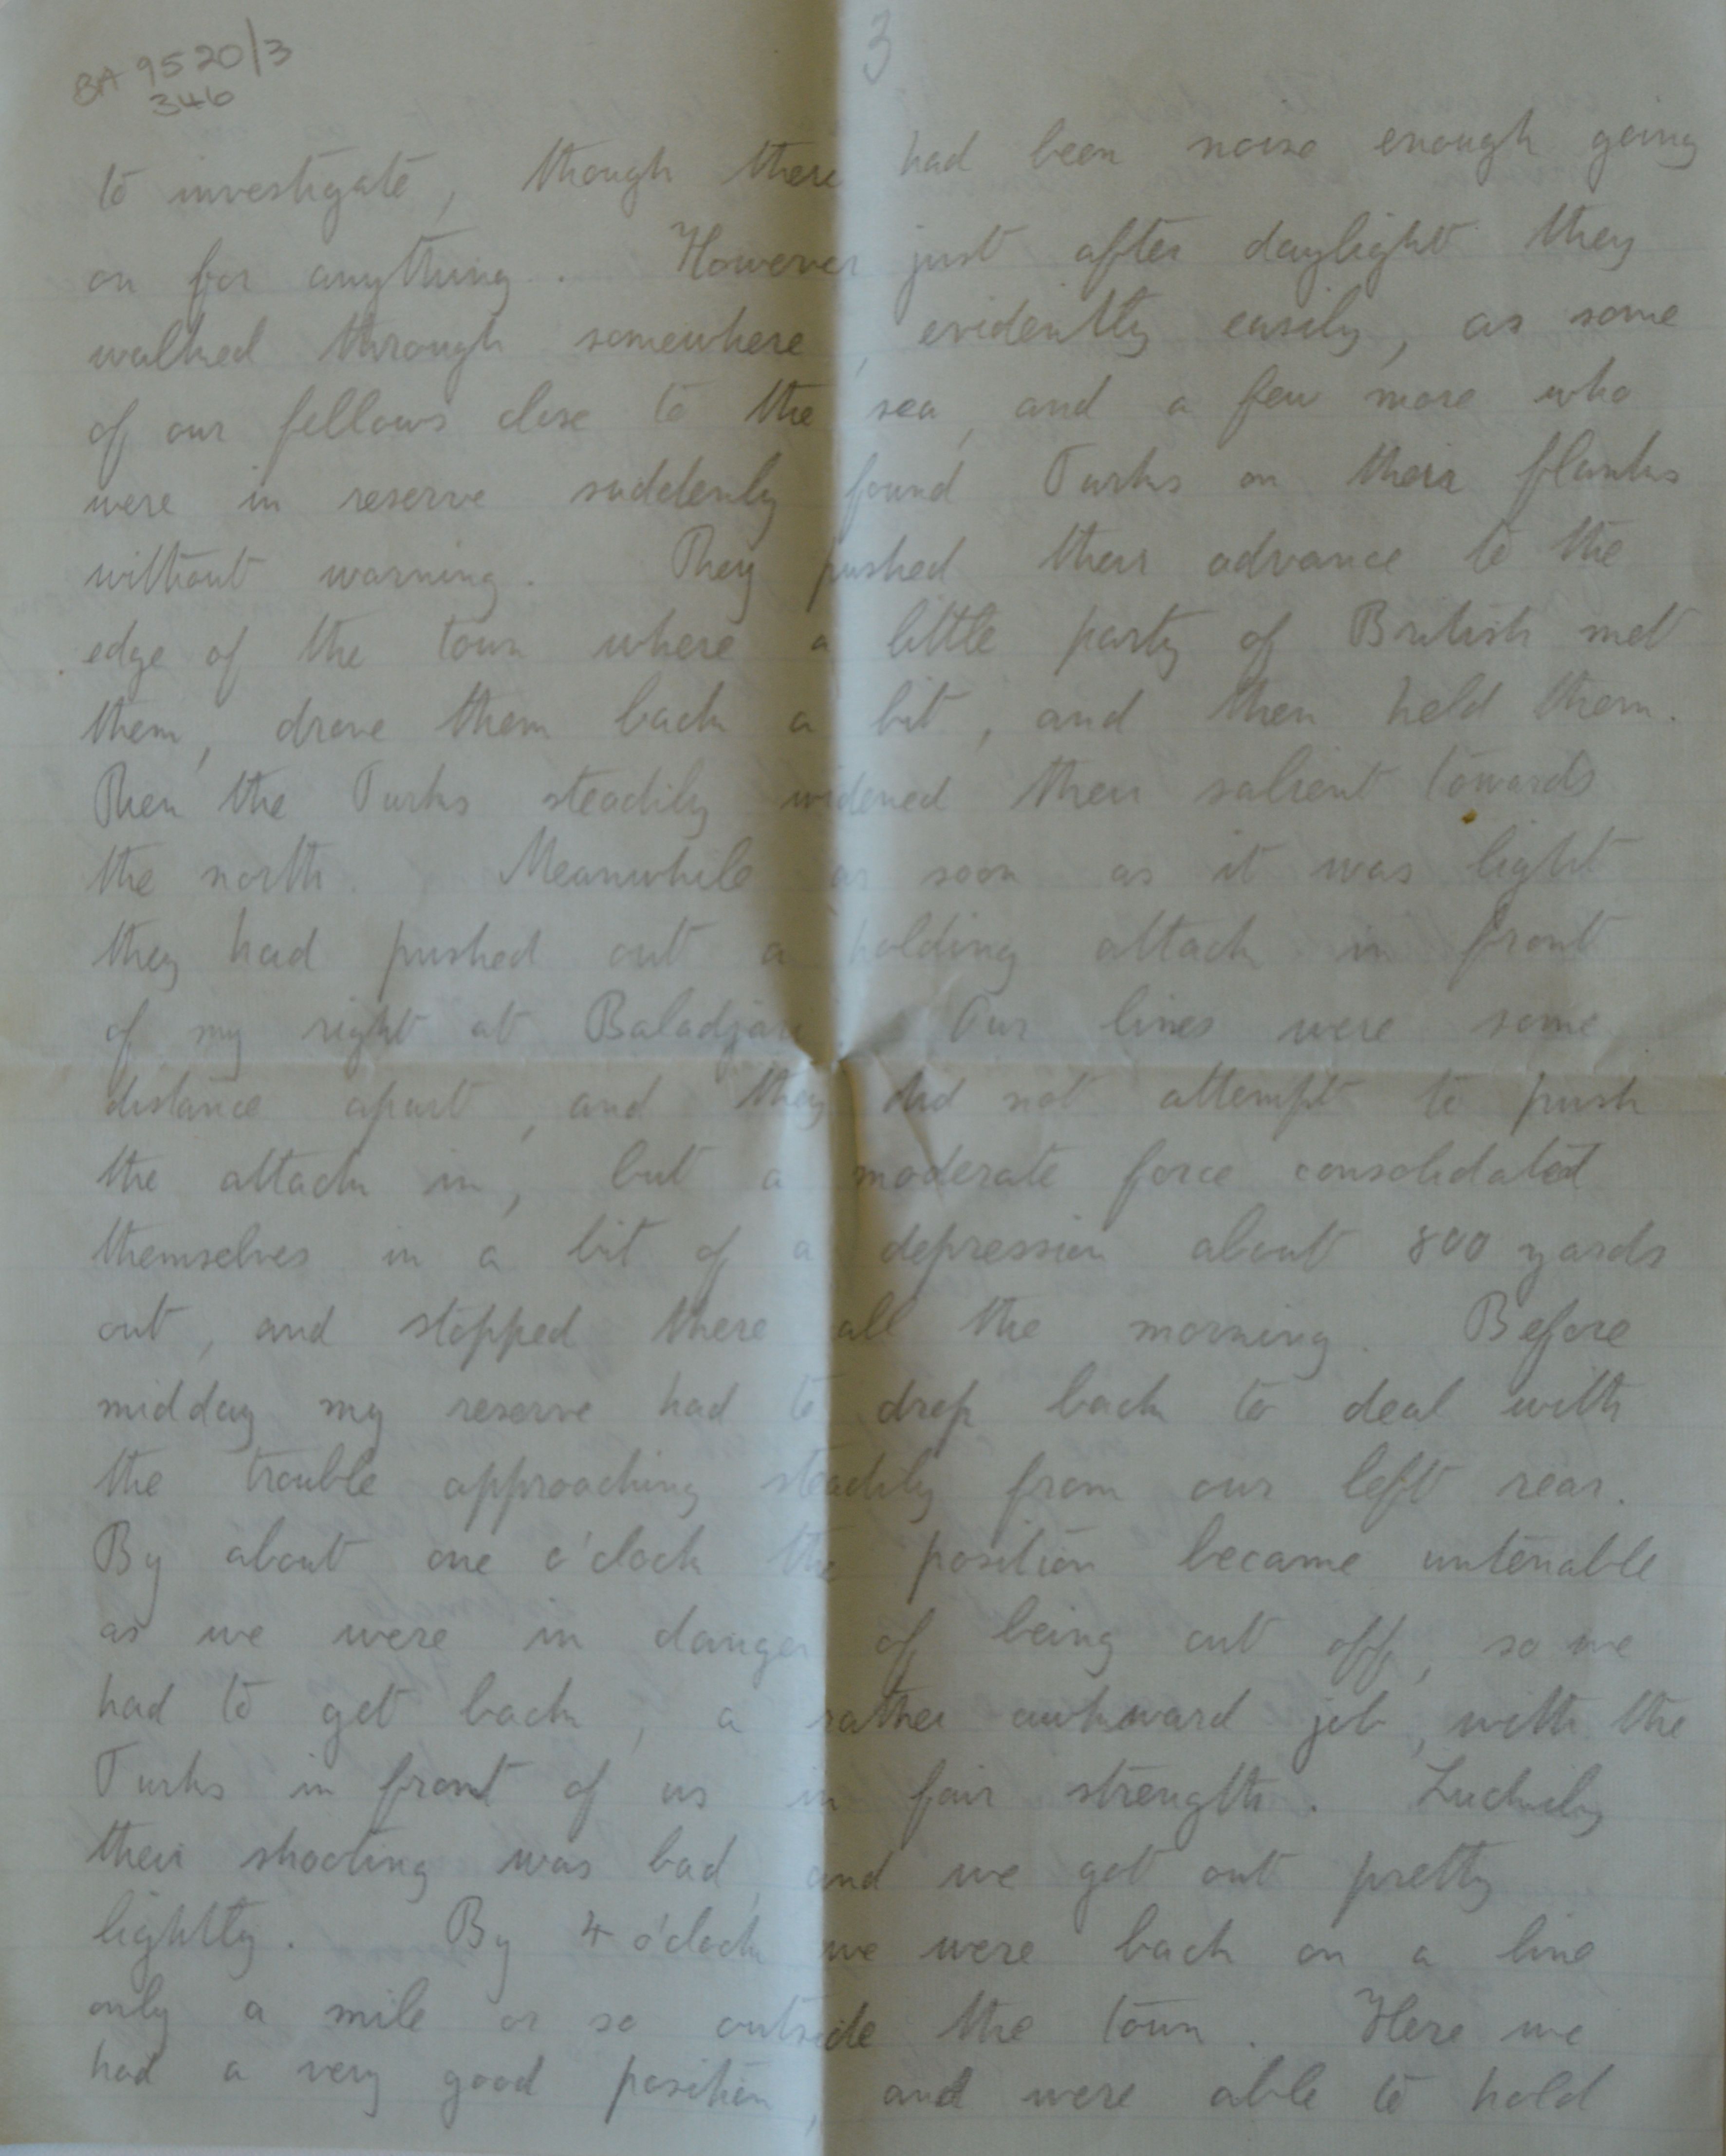 BA 9520/3
346
3
to investigate, though there had been noise enough going
on for anything. However just after daylight they
walked through somewhere, evidently easily, as some
of our fellows close to the sea, and a few more who
were in reserve suddenly found Turks on their flanks
without warning. They pushed their advance to the
edge of the town where a little party of British met
them, drove them back a bit, and then held them.
Then the Turks steadily widened their salient towards
the north. Meanwhile as soon as it was light
they had pushed out a holding attack in front
of my right at Baladjari. Our lines were some
distance apart, and they did not attempt to push
the attack in, but a moderate force consolidated
themselves in a bit of a depression about 800 yards
out, and stopped there all the morning. Before
midday my reserve had to drop back to deal with
the trouble approaching steadily from our left rear.
By about one o'clock the position became untenable
as we were in danger of being cut off, so we
had to get back, a rather awkward job, with the
Turks in front of us in fair strength. Luckily
their shooting was bad, and we got out pretty
lightly. By 4 o'clock we were back on a line
only a mile or so outside the town. Here we
had a very good position, and were able to hold